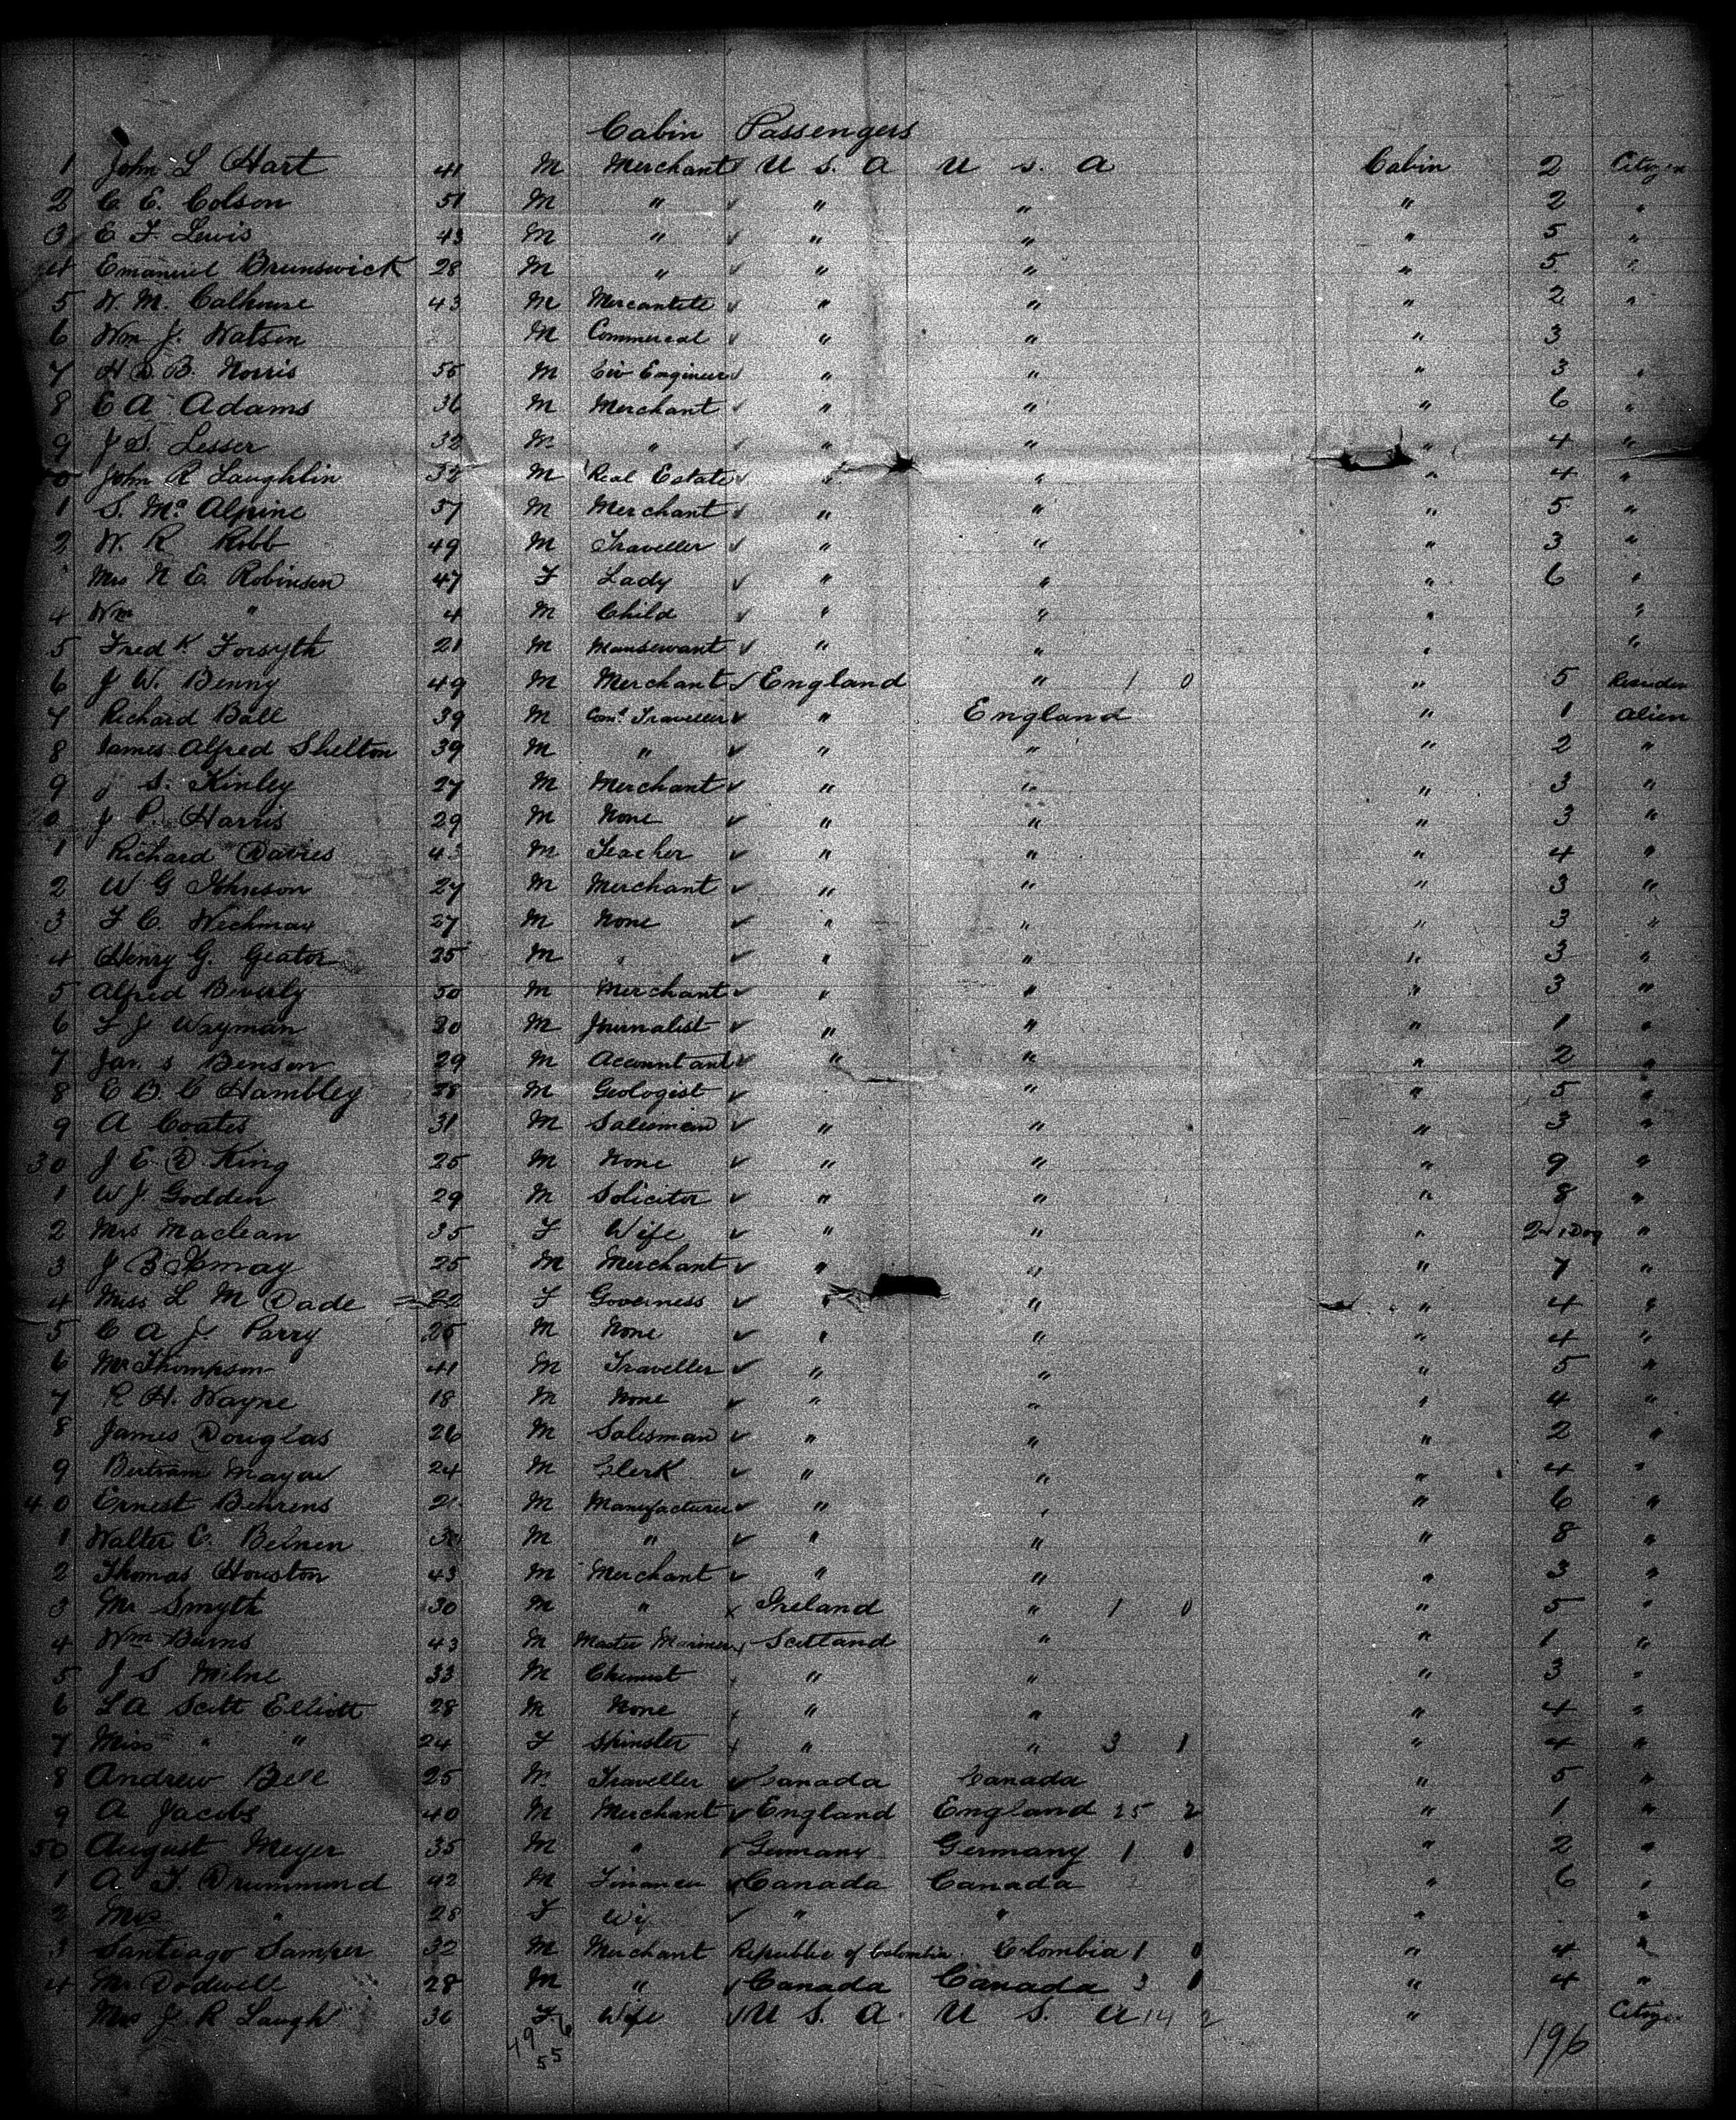 Cabin Passengers
1 John L Hart 41 M Merchant U S. A U S. A Cabin 2 Citizen
2 C. E. Colson 51 M " ✓ " " " 2 "
3 E F Lewis 43 M " ✓ " " " 5 "
4 Emanuel Brunswick 28 M " ✓ " " " 5 "
5 W. M. Calhouse 43 M Mercantile ✓ " " " 2 "
6 Wm J. Watson M Commercal ✓ " " " 3
7 H D. B. Norris 55 M Civ Engineer ✓ " " " 3 "
8 E A Adams 36 M Merchant ✓ " " " 6 "
9 J S. Lesser 32 M " ✓ " " " 4 "
0 John R Laughlin 32 M Real Estate ✓ " " " 4 "
1 S. Mc Alpine 57 M Merchant ✓ " " " 5 "
2 W. R Robb 49 M Traveller ✓ " " " 3 "
Mrs N E. Robinson 47 F Lady ✓ " " " 6 "
4 Wm " 4 M Child ✓ " " " "
5 Fredk Forsyth 21 M Manservant ✓ " " " "
6 J W. Benny 49 M Merchant ✓ England " 1 0 " 5
7 Richard Ball 39 M Coml Traveller ✓ " England " 1 Alien
8 James Alfred Shelton 39 M " ✓ " " " 2 "
9 J S. Kinley 27 M Merchant ✓ " " " 3 "
0 J P. Harris 29 M None ✓ " " " 3 "
1 Richard Davies M Teacher ✓ " " " 4 "
2 W G Johnson 27 M Merchant ✓ " " " 3 "
3 F C. 27 M None ✓ " " " 3 "
4 Henry G. Geator 25 M " ✓ " " " 3 "
5 Alfred Beverly 50 M Merchant ✓ " " " 3 "
6 F J Wayman 30 M Journalist ✓ " " " 1 "
7 Jas. S Benson 29 M Accountant ✓ " " " 2 "
8 E B. C Hambley 28 M Geologist ✓ " " " 5 "
9 A Coates 31 M Salesman ✓ " " " 3 "
30 J E. D. King 25 M None ✓ " " " 9 "
1 W J. Godden 29 M Solicitor ✓ " " " 8 "
2 Mrs Maclean 35 F Wife ✓ " " " "
3 J B Ismay 25 M Merchant ✓ " " " 7 "
4 Miss L M Dade 22 F Governess ✓ " " " 4 "
5 C A J. Parry 25 M None ✓ " " " 4 "
6 Mr Thompson 41 M Traveller ✓ " " " 5 "
7 R H. Wayne 18 M None ✓ " " " 4 "
8 James Douglas 26 M Salesman ✓ " " " 2 "
9 Bertram Mayer 24 M Clerk ✓ " " " 4 "
40 Ernest Behrens M Manufacturer ✓ " " " 6 "
1 Walter E. M " ✓ " " " 8 "
2 Thomas Houston 43 M Merchant ✓ " " " 3 "
3 Mr Smyth 30 M " x Ireland " 1 0 " 5 "
4 Wm Burns 43 M Master Mariner x Scotland " " 1 "
5 J S Milne 33 M Chemist x " " " 3 "
6 L A Scott Elliott 28 M None x " " " 4 "
7 Miss " " 24 F Spinster x " " 3 1 " 4 "
8 Andrew Bell 25 M Traveller ✓ Canada Canada " 5 "
9 A Jacobs 40 M Merchant ✓ England England 25 2 " 1 "
50 August Meyer 35 M " ✓ Germany Germany 1 0 " 2 "
1 A. T. Drummond 42 M ✓ Canada Canada " 6 "
2 Mrs " 28 F ✓ " " " "
3 Santiago Samper 32 M Merchant Republic of Colombia Colombia 1 0 " 4 "
4 Mr Dodwell 28 M " ✓ Canada Canada 3 1 " 4 "
Mrs J. R Laugh 36 F Wife ✓ U S. A. U S. A 14 2 " Citizen
49 6
55
196